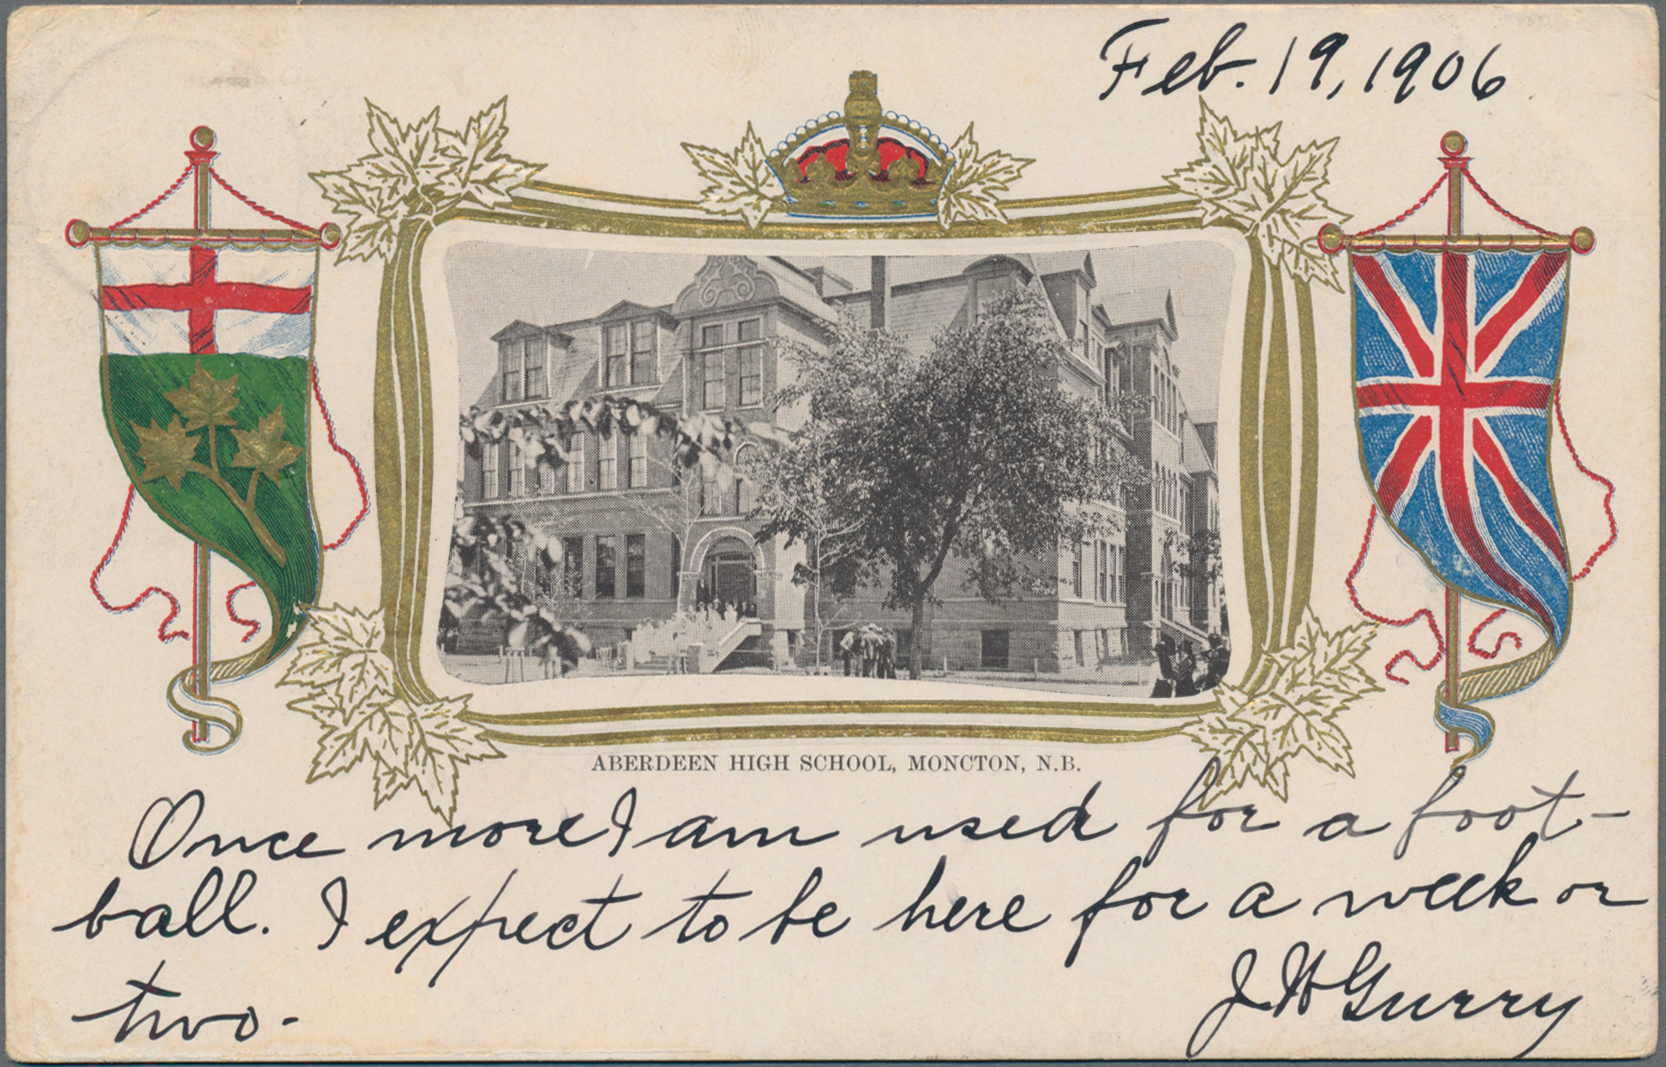 Feb. 19, 1906
ABERDEEN HIGH SCHOOL, MONCTON, N.B.
Once more I am used for a foot-
ball. I expect to be here for a week or
two.
J H Gurry